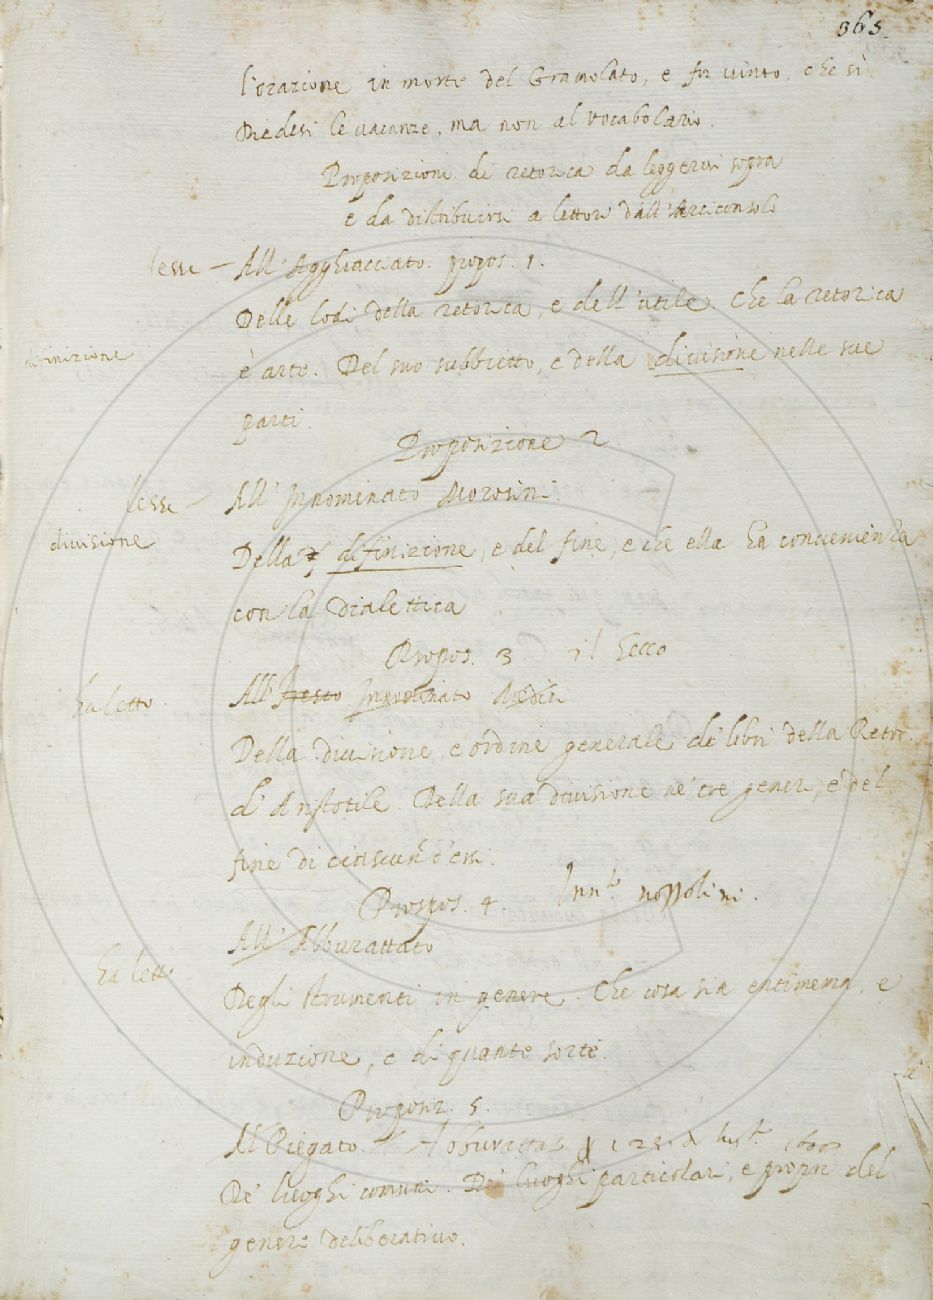 365.
l'orazione in morte del Gramolato, e fu vinto, che sì.
Diedesi le vacanze, ma non al vocabolario.
Proposizioni di retorica da leggersi sopra
e da distribuirsi a lettori dall'Arciconsolo
lesse — All'Agghiacciato. propos. 1.
Delle lodi della retorica, e dell'utile. Che la retorica
difinizione
è arte. Del suo subbietto, e della divisione nelle sue
parti.
Proposizione 2
lesse — All'Innominato Morosini.
divisione
Della difinizione, e del fine, e che ella ha convenienza
con la dialettica
Propos. 3 il Ecco
ha letto. All' Medici
Della divisione, e ordine generale de' libri della Retor.
d'Aristotile. Della sua divisione ne' tre generi, e del
fine di ciascun d'essi.
Propos. 4. Inn.to nozzolini.
All'Abburattato
ha letto
Degli strumenti in genere. Che cosa sia entimema, e
induzione, e di quante sorte.
Proposiz. 5.
Al Piegato. Abburattato 1600
De' luoghi comuni. De' luoghi particolari, e propri del
genere deliberativo.